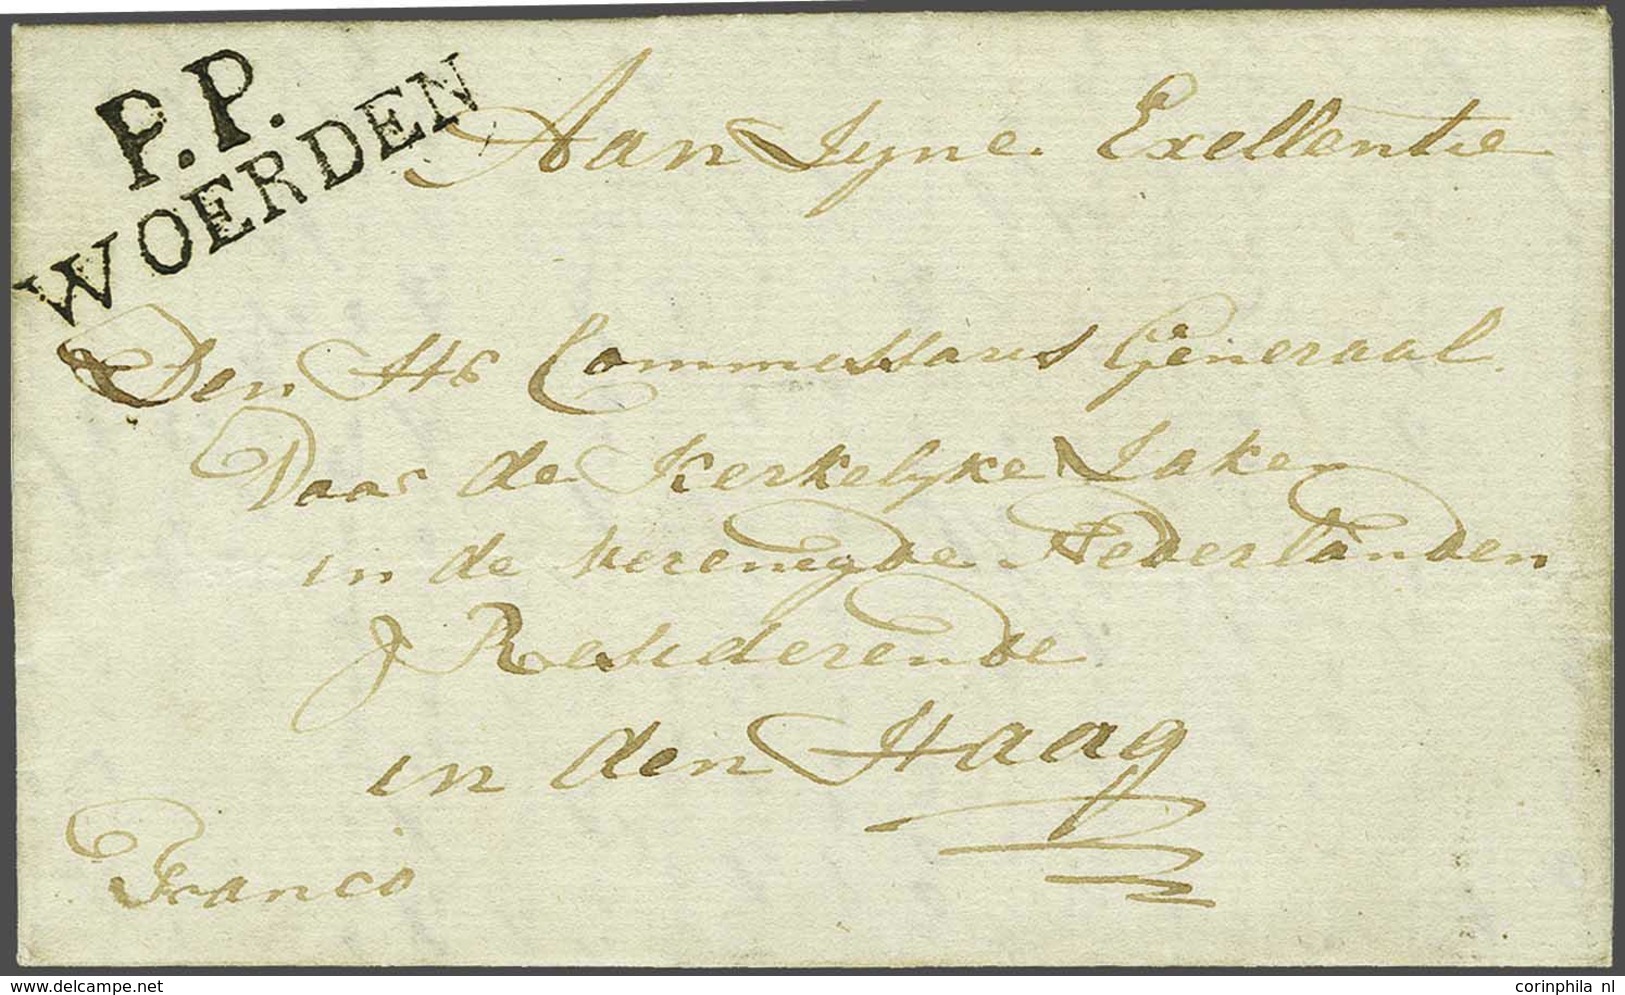 P.P.
WOERDEN
Aan Zyne Exellentie
Den Hr Commissaris Generaal
Voor de Kerkelyke Zaken
in de Verenigde Nederlanden
Resideerende
in den Haag
Franco
corinphila nl